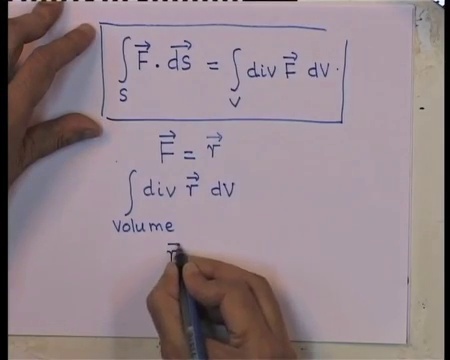 ∫_S F⃗ · d⃗s = ∫_V div F⃗ dV.
F⃗ = r⃗
∫_volume div r⃗ dV
r⃗